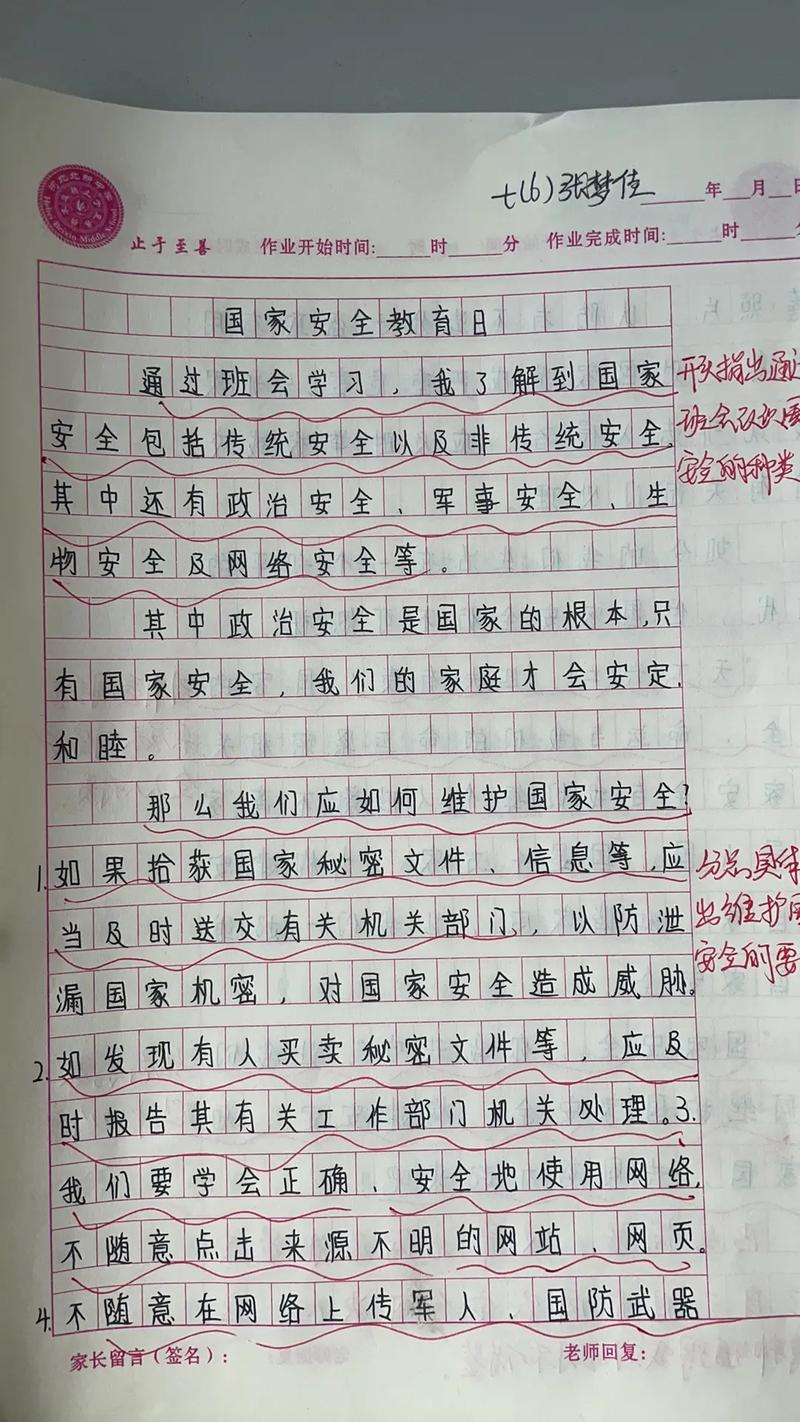 七(6)张梦佳 年 月 日
止于至善 作业开始时间: 时 分 作业完成时间: 时 分
国家安全教育日
通过班会学习，我了解到国家
安全包括传统安全以及非传统安全。
其中还有政治安全、军事安全、生
物安全及网络安全等。
其中政治安全是国家的根本,只
有国家安全，我们的家庭才会安定、
和睦。
那么我们应如何维护国家安全?
1.如果拾获国家秘密文件、信息等,应
当及时送交有关机关部门,，以防泄
漏国家机密，对国家安全造成威胁。
2.如发现有人买卖秘密文件等，应及
时报告其有关工作部门机关处理。3.
我们要学会正确、安全地使用网络,
不随意点击来源不明的网站、网页。
4.不随意在网络上传军人、国防武器
开头指出通过
班会
安全的种类
分点具体
出维护国
安全的要
家长留言(签名): 老师回复: